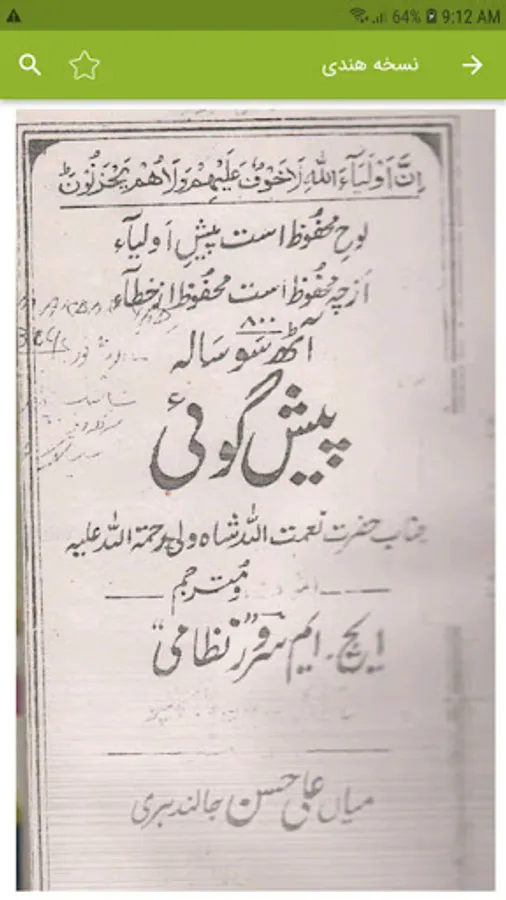 64% 9:12 AM
نسخه هندی
اِنَّ اَوْلِیَآءَ اللّٰہِ لَاخَوْفٌ عَلَیْہِمْ وَلَاھُمْ یَحْزَنُوْنَ ط
لوحِ محفوظ است پیشِ اَولیاء
اَز چہ محفوظ اَست محفوظ از خطاء
۸۰۰
آٹھ سَو سَالہ
پیش گوئی
جناب حضرت نعمت اللہ شاہ ولی رحمۃ اللہ علیہ
و مترجم
ایچ ۔ ایم سرور نظامی
میاں علی حسن جالندہری